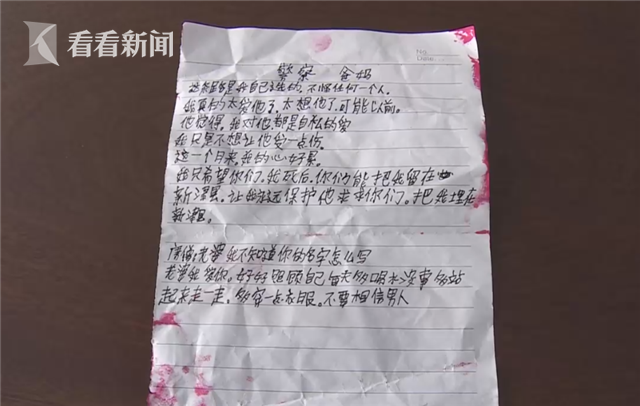 看看新闻
No.
Date.
警察 爸妈
这条路是我自己选的,不怪任何一个人。
我真的太爱他了,太想他了,可能以前。
他觉得,我对他都是自私的爱
我只是不想让他受一点伤。
这一个月来,我的心好累。
我只希望你们,我死后,你们能把我留在
新泾里,让我永远保护他求求你们。把我埋在
新泾。
老婆我不知道你的名字怎么写
老婆我爱你,好好照顾自己每天多喝水没事多站
起来走一走,多穿一点衣服。不要相信男人